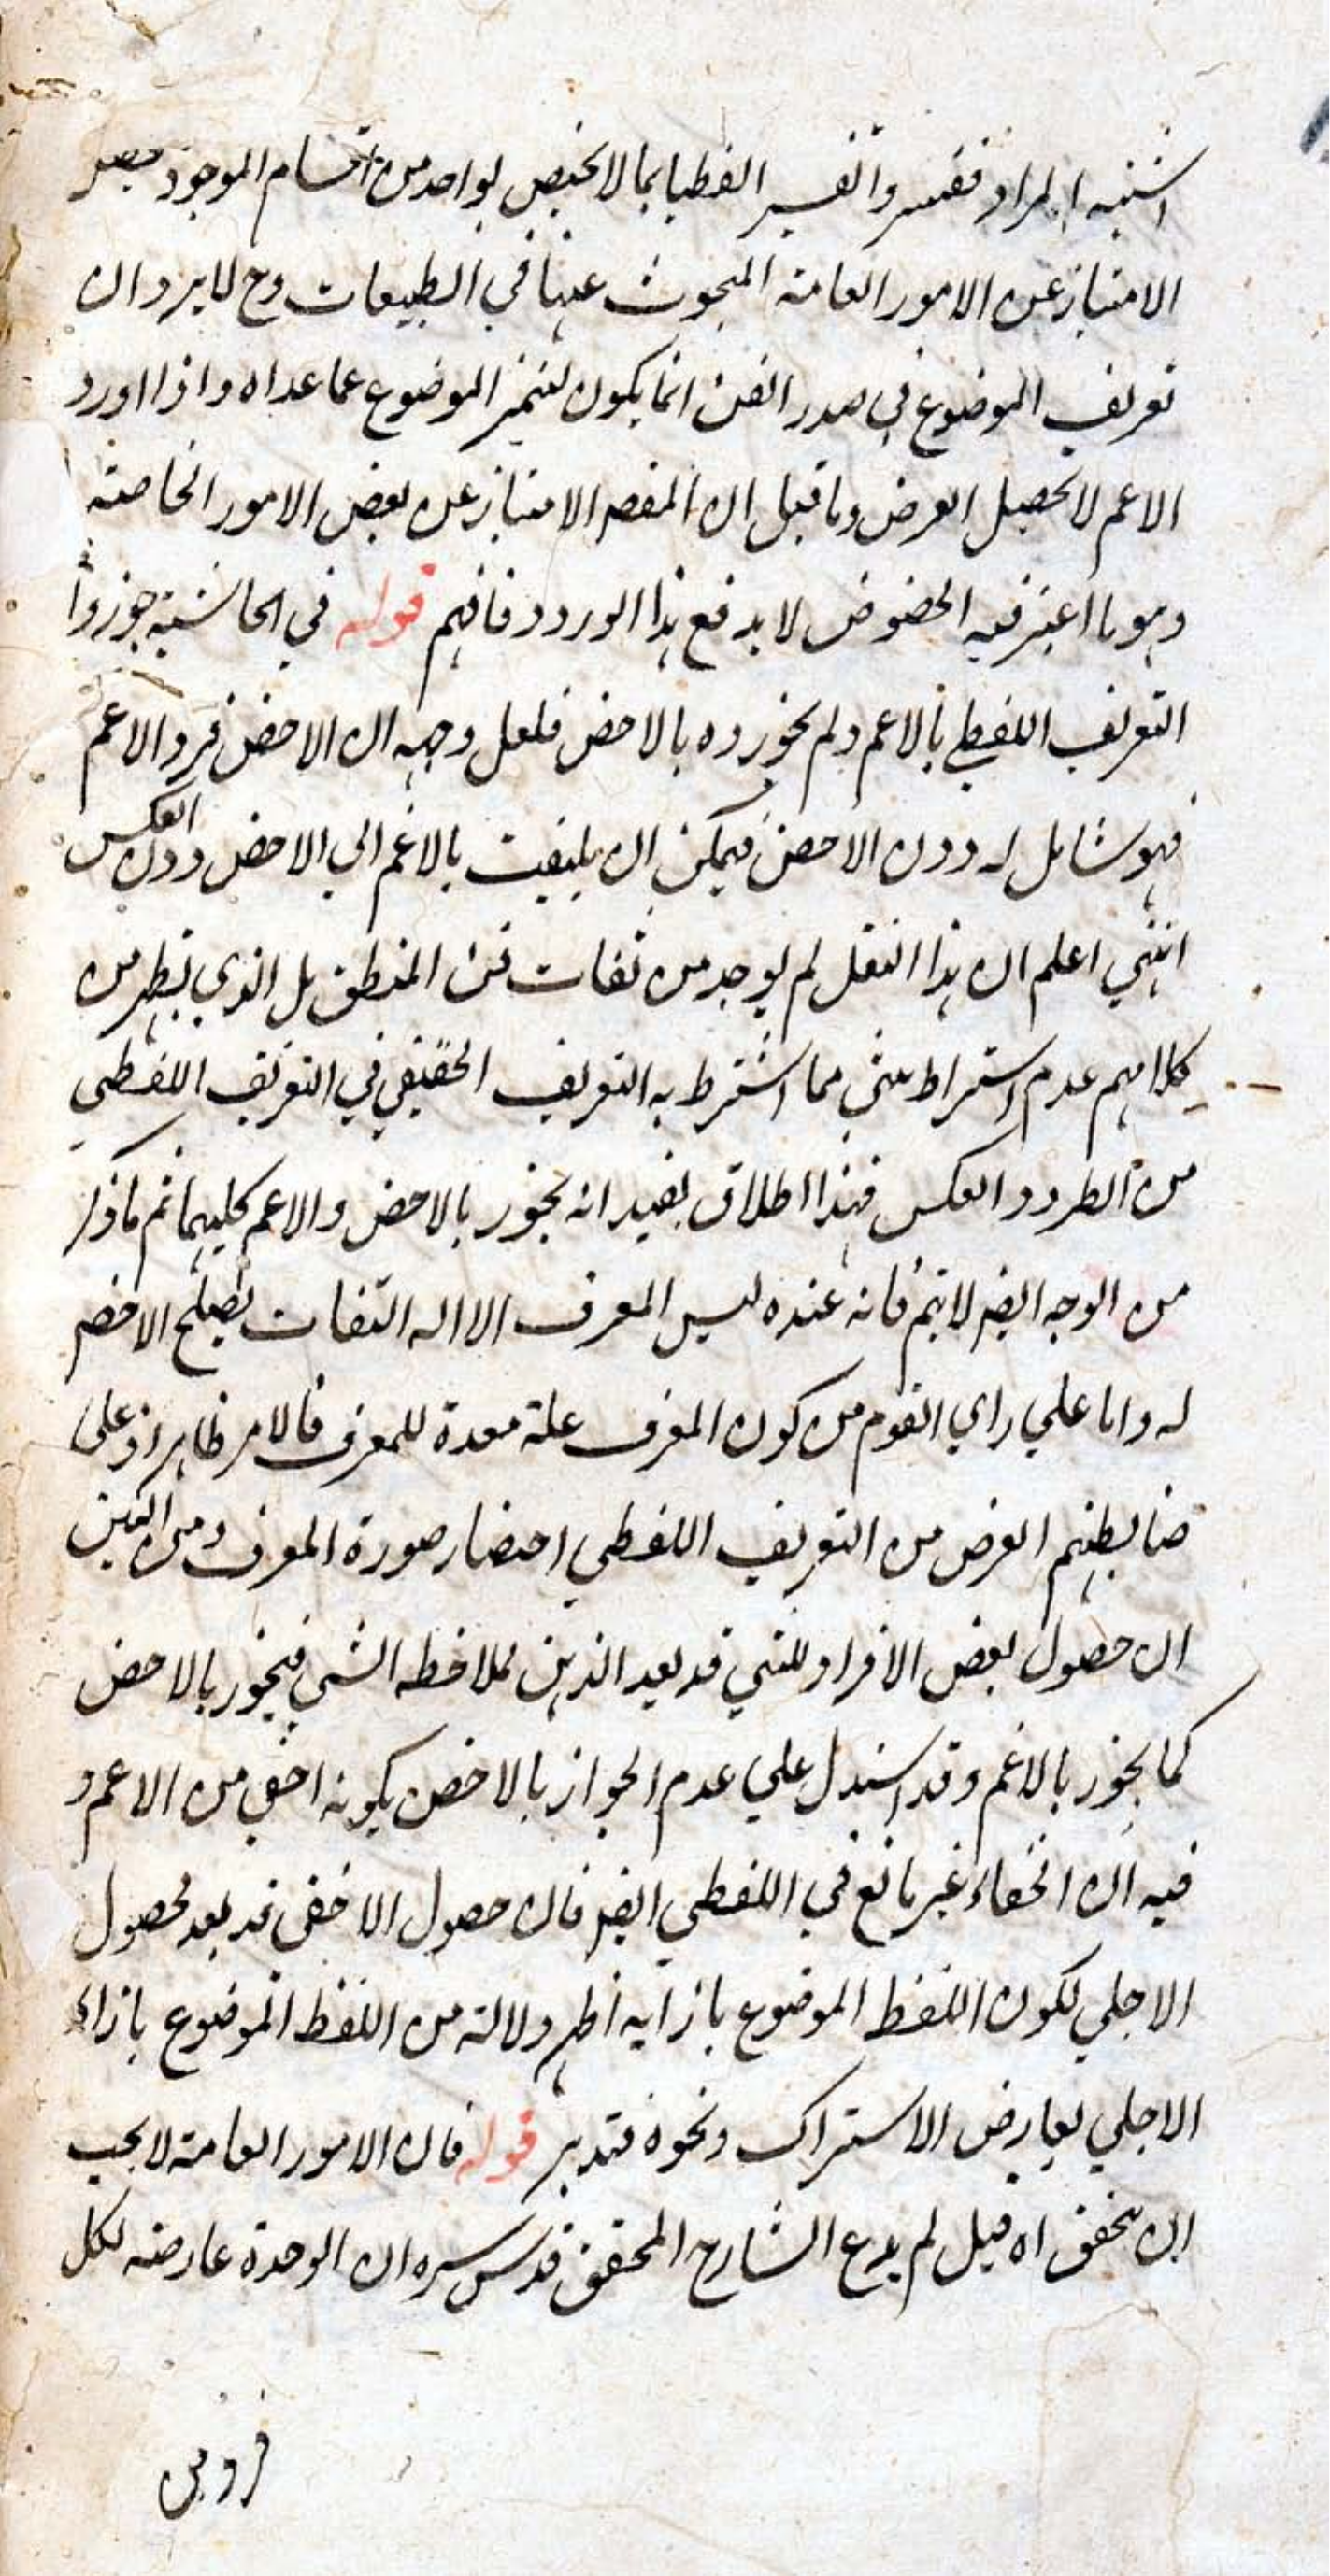 اشتبه المراد ففسروا تفسير لفظيا بما لا يختص بواحد من اقسام الموجود
الامتياز عن الامور العامة المبحوث عنها في الطبيعات وح لا يرد ان
تعريف الموضوع في صدر الفن انما يكون لتميز الموضوع عما عداه واذا اورد
الاعم لا يحصل الغرض وما قيل ان المقصد الامتياز عن بعض الامور الخاصة
وهو ما اعتبر فيه الخصوص لا يدفع هذا الورود فافهم قوله في الحاشية جوزوا
التعريف اللفظي بالاعم ولم يجوزوه بالاخص فلعل وجهه ان الاخص فرد الاعم
فهو شامل له دون الاخص فيمكن ان يلتفت بالاعم الى الاخص دون العكس
انتهي اعلم ان هذا النقل لم يوجد من ثقات فن المنطق بل الذي يظهر من
كلامهم عدم اشتراط شئ مما اشترط به التعريف الحقيقي في التعريف اللفظي
من الطرد والعكس فهذا اطلاق يفيد انه يجوز بالاخص والاعم كليهما ثم ما ذكر
من الوجه ايضا لا يتم فانه عنده ليس المعرف الا آلة التفات يصلح الاخص
له واما علي راي القوم من كون المعرف علة معدة للمعرف فالامر ظاهر اذ على
ضابطتهم الغرض من التعريف اللفظي احضار صورة المعرف ومن البين
ان حصول بعض الافراد للشي قد يعد الذهن لملاحظة الشي فيجوز بالاخص
كما يجوز بالاعم وقد استدل علي عدم الجواز بالاخص بكونه اخفي من الاعم و
فيه ان الخفاء غير مانع في اللفظي ايضا فان حصول الاخفي قد يعد لحصول
الاجلي لكون اللفظ الموضوع بازائه اظهر دلالة من اللفظ الموضوع بازاء
الاجلي لعارض الاشتراك ونحوه فتدبر قوله فان الامور العامة لا يجب
ان يتحقق اه قيل لم يدع الشارح المحقق قدس سره ان الوحدة عارضة لكل